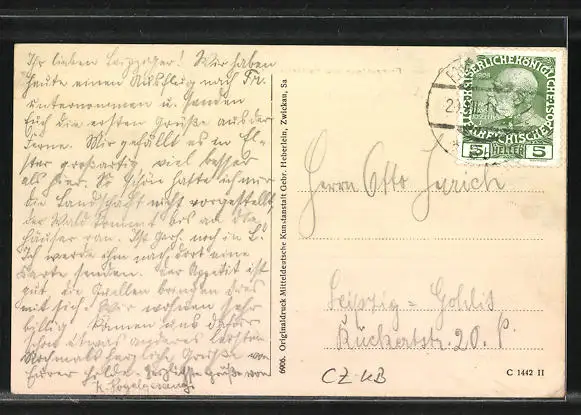 Ihr lieben Leipziger! Wir haben
heute einen Ausflug nach Fr.
unternommen u. senden
Euch die ersten Grüße aus der
Ferne. Mir gefällt es in El-
ster großartig viel besser
als hier. So schön hatte ich mir
die Landschaft nicht vorgestellt,
der Wald kommt bis an die
häuser ran. Ist Gerh. noch in L.?
Ich werde ihm nach dort eine
Karte senden. Der Appetit ist
gut die Quellen bringen dies
mit sich. Wir wohnen sehr
billig können uns dafür
schon etwas anderes leisten.
Nochmals herzliche Grüße von
Eurer Hilde. Herzlichste Grüße von
6906. Originaldruck Mitteldeutsche Kunstanstalt Gebr. Heberlein, Zwickau, Sa
KAISERLICHE KÖNIGLICHE
ÖSTERREICHISCHE POST
1908
5 HELLER 5
Herrn Otto
Leipzig=Gohlis
Rückertstr. 20. P.
CZ KB
C 1442 II